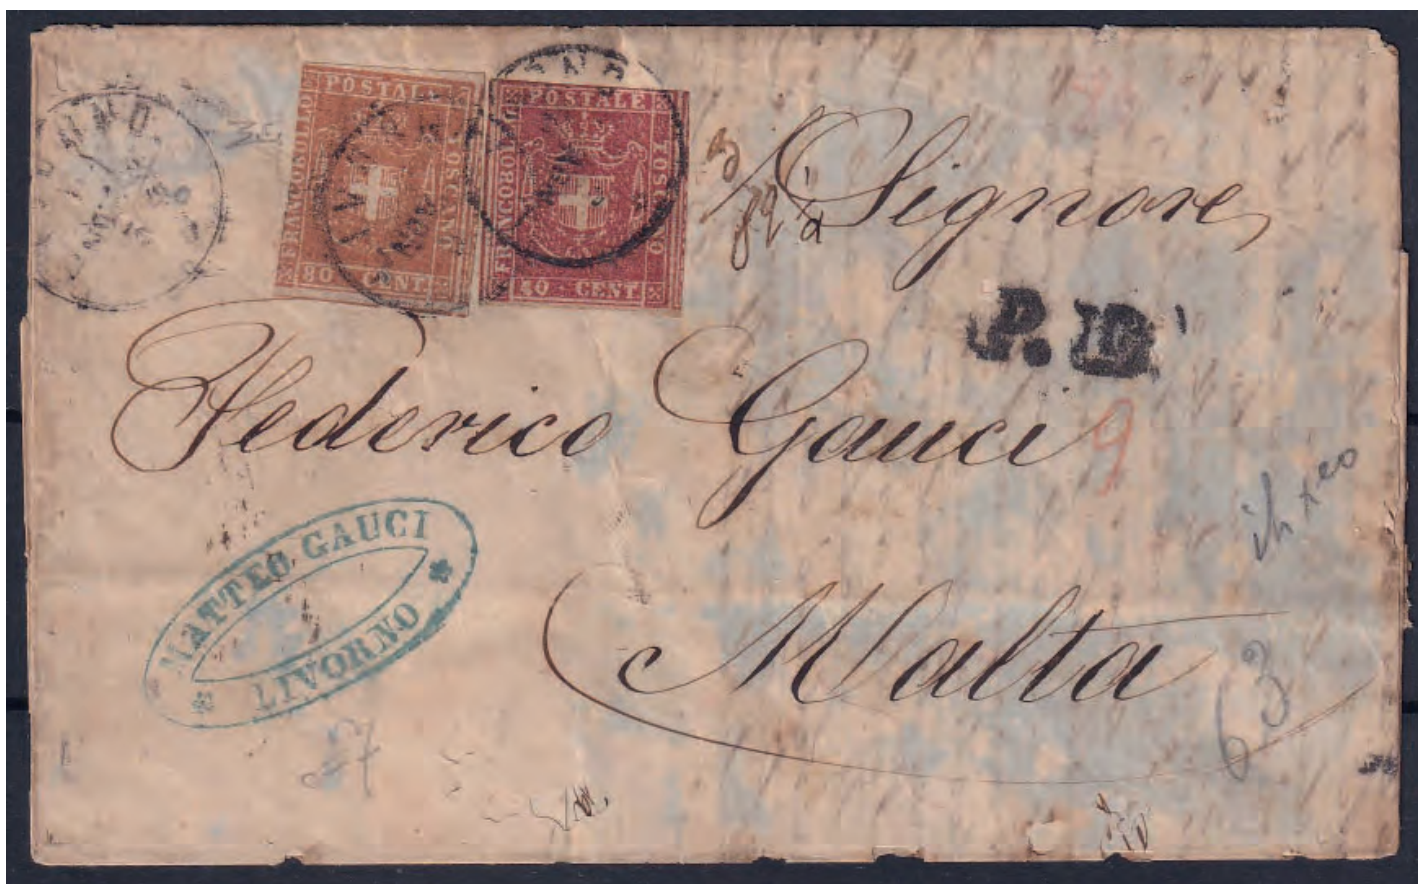 LIVORNO
FRANCOBOLLO
POSTALE
TOSCANO
80 CENT
LIVORNO
NOV
FRANCOBOLLO
POSTALE
TOSCANO
40 CENT
Signore
P.D.
Federico Gauci
9
MATTEO GAUCI
LIVORNO
Malta
63